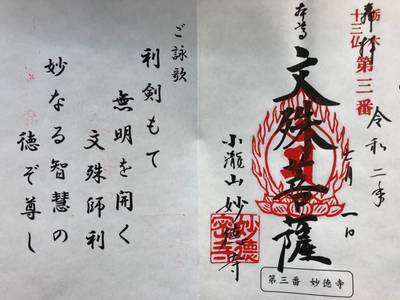 栃木
十三仏
第三番
奉拝
令和二年
七月一日
本尊
文殊菩薩
小瀧山 妙徳寺
第三番 妙徳寺
ご詠歌
利剣もて
無明を開く
文殊師利
妙なる智慧の
徳ぞ尊し